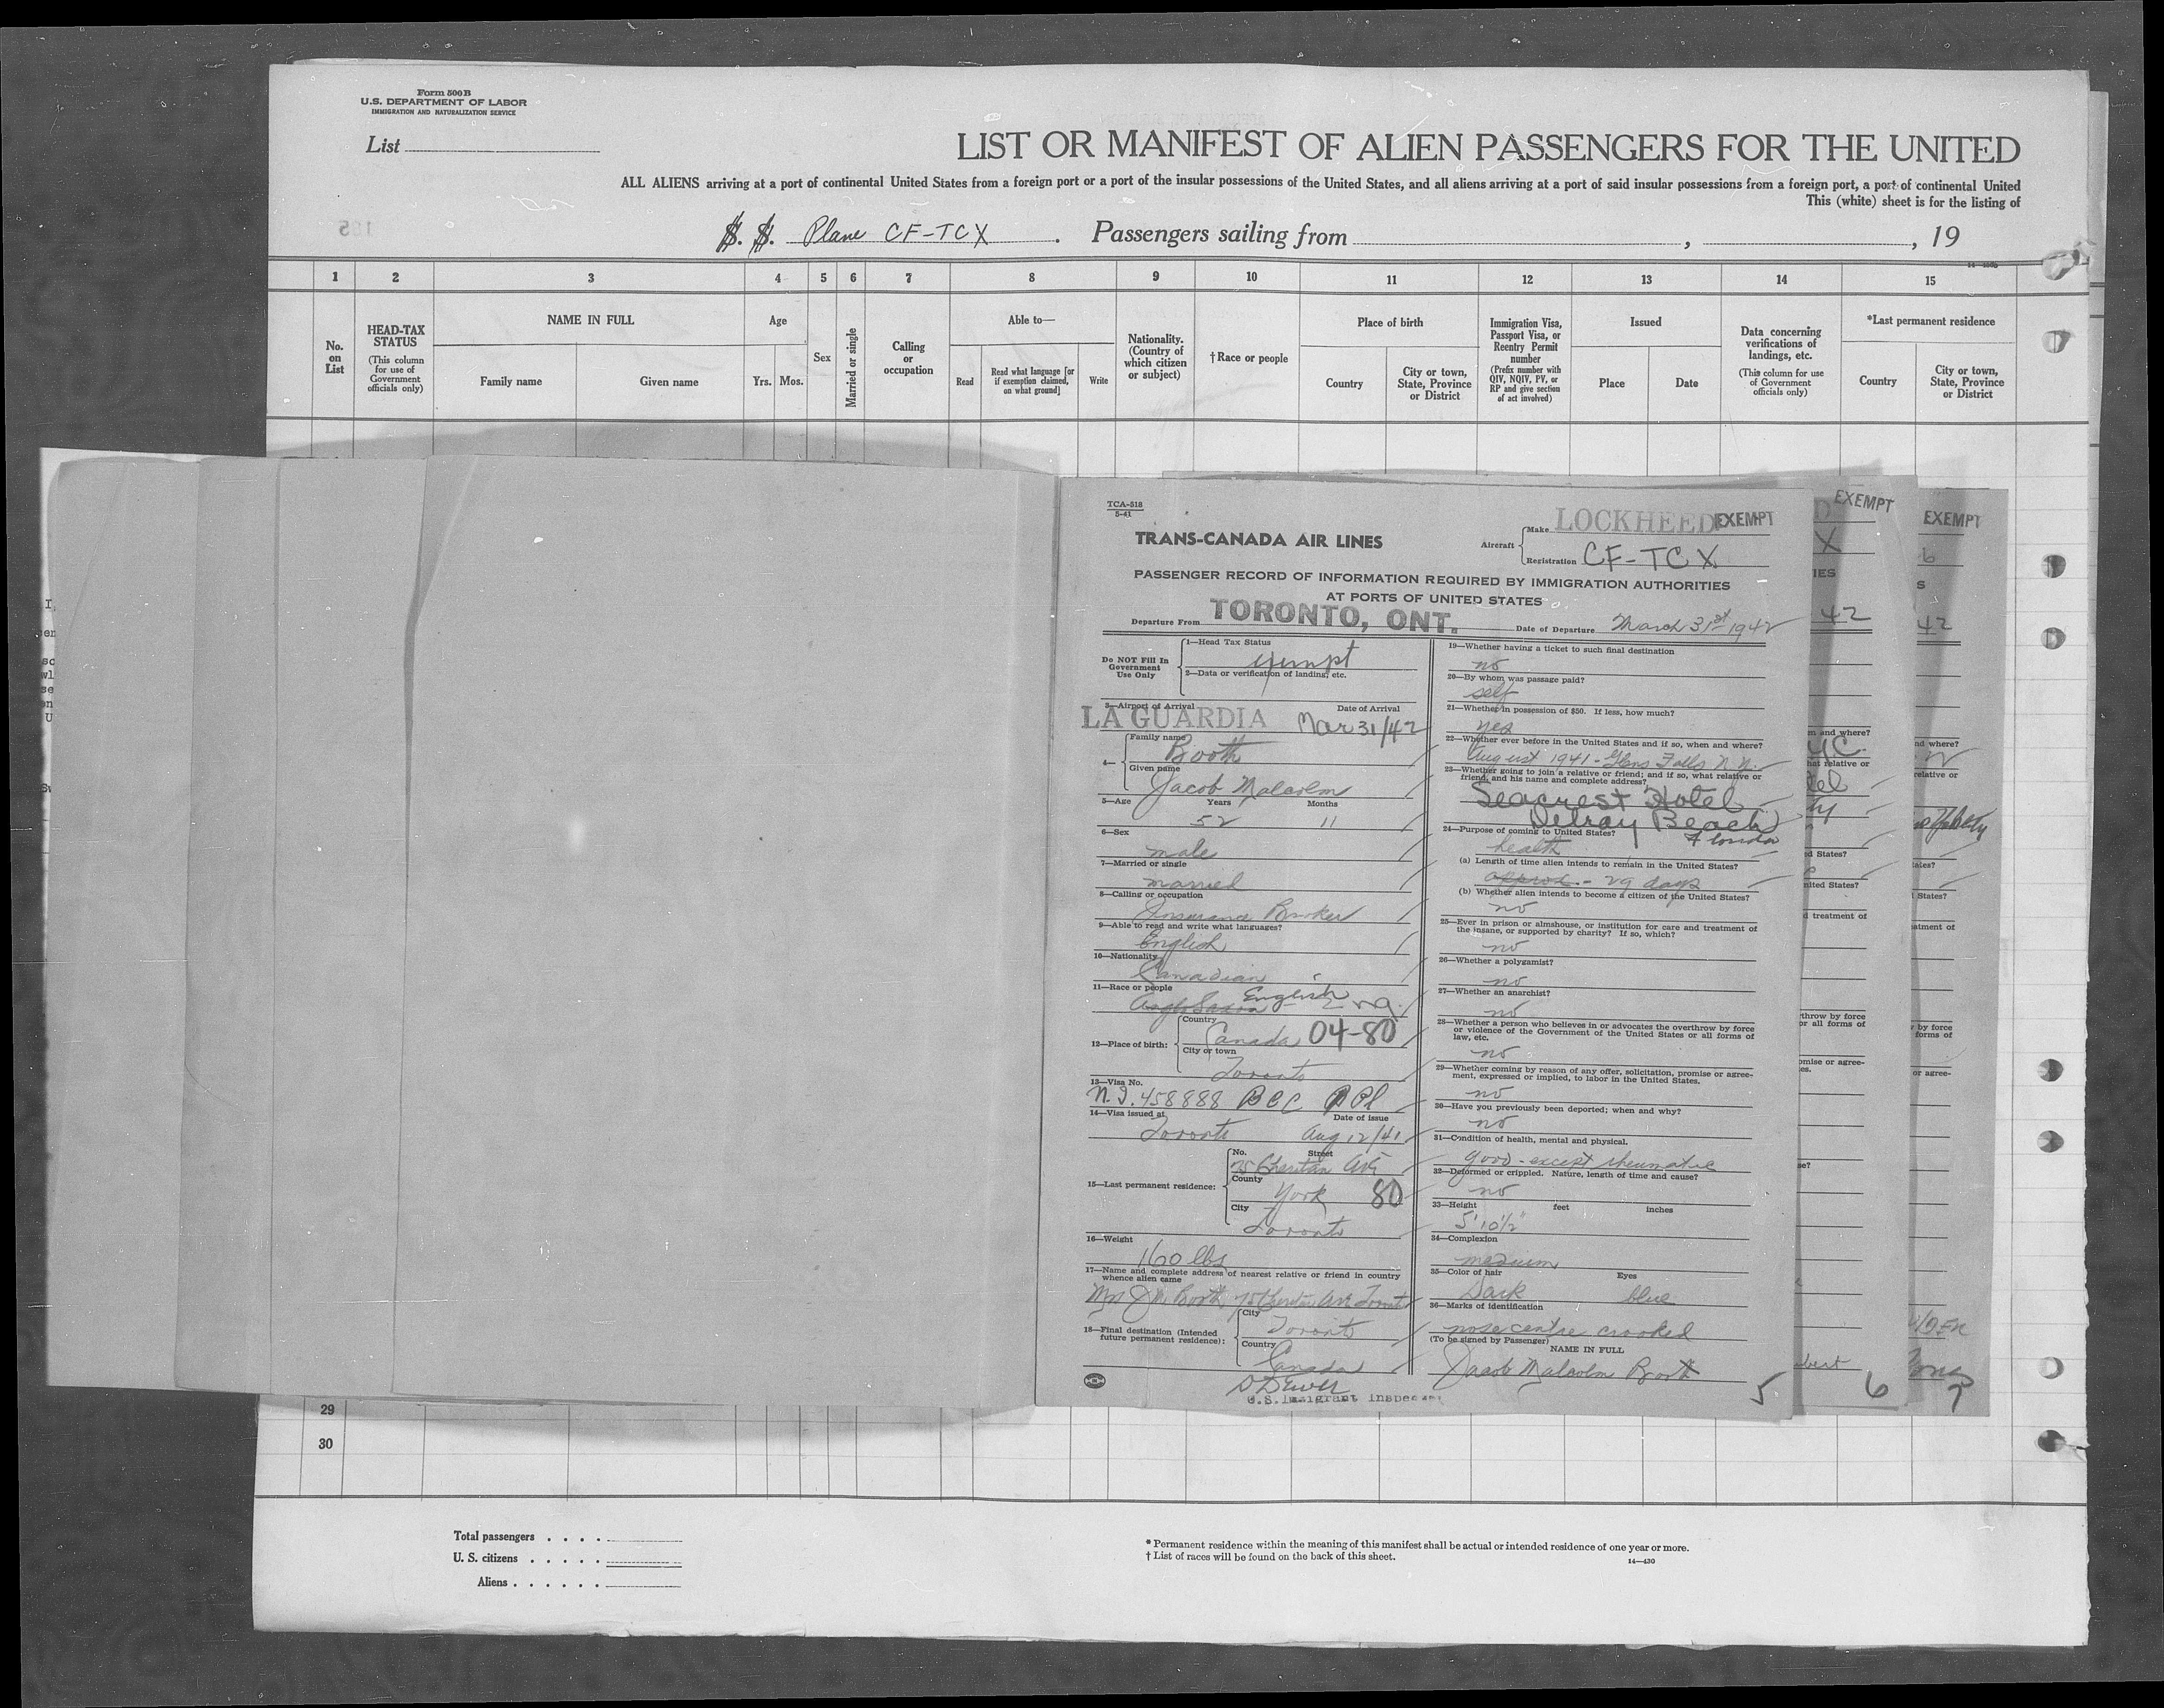 Form 500 B
U.S. DEPARTMENT OF LABOR
IMMIGRATION AND NATURALIZATION SERVICE
List
LIST OR MANIFEST OF ALIEN PASSENGERS FOR THE UNITED
ALL ALIENS arriving at a port of continental United States from a foreign port or a port of the insular possessions of the United States, and all aliens arriving at a port of said insular possessions from a foreign port, a port of continental United
This (white) sheet is for the listing of
S. S. Plane CF-TCX . Passengers sailing from , , 19
1 2 3 4 5 6 7 8 9 10 11 12 13 14 15
No. on List
HEAD-TAX STATUS
(This column for use of Government officials only)
NAME IN FULL
Family name Given name
Age
Yrs. Mos.
Sex
Married or single
Calling or occupation
Able to—
Read
Read what language [or if exemption claimed, on what ground]
Write
Nationality. (Country of which citizen or subject)
† Race or people
Place of birth
Country
City or town, State, Province or District
Immigration Visa, Passport Visa, or Reentry Permit number
(Prefix number with QIV, NQIV, PV, or RP and give section of act involved)
Issued
Place Date
Data concerning verifications of landings, etc.
(This column for use of Government officials only)
*Last permanent residence
Country
City or town, State, Province or District
TCA-518
5-41
TRANS-CANADA AIR LINES
Aircraft
Make LOCKHEED EXEMPT
Registration CF-TCX
PASSENGER RECORD OF INFORMATION REQUIRED BY IMMIGRATION AUTHORITIES
AT PORTS OF UNITED STATES
Departure From TORONTO, ONT. Date of Departure March 31st 1942
Do NOT Fill In Government Use Only
1—Head Tax Status
exempt
2—Data or verification of landing, etc.
3—Airport of Arrival Date of Arrival
LA GUARDIA Mar 31/42
4—
Family name
Booth
Given name
Jacob Malcolm
5—Age Years Months
52 11
6—Sex
male
7—Married or single
married
8—Calling or occupation
Insurance Broker
9—Able to read and write what languages?
English
10—Nationality
Canadian
11—Race or people
Anglo Saxon English
12—Place of birth:
Country
Canada 04-80
City or town
Toronto
13—Visa No.
N.I. 458888 BCC
14—Visa issued at Date of issue
Toronto Aug 12/41
15—Last permanent residence:
No. Street
75 Cheritan Ave
County
York 80
City
Toronto
16—Weight
160 lbs
17—Name and complete address of nearest relative or friend in country
whence alien came
Mrs J M Booth, 75 Cheritan Ave Toronto
18—Final destination (Intended
future permanent residence):
City
Toronto
Country
Canada
U.S. Immigrant Inspector
19—Whether having a ticket to such final destination
no
20—By whom was passage paid?
self
21—Whether in possession of $50. If less, how much?
yes
22—Whether ever before in the United States and if so, when and where?
August 1941 - Glens Falls N.Y.
23—Whether going to join a relative or friend; and if so, what relative or
friend, and his name and complete address?
Seacrest Hotel
Delray Beach
Florida
24—Purpose of coming to United States?
health
(a) Length of time alien intends to remain in the United States?
approx. - 29 days
(b) Whether alien intends to become a citizen of the United States?
no
25—Ever in prison or almshouse, or institution for care and treatment of
the insane, or supported by charity? If so, which?
no
26—Whether a polygamist?
no
27—Whether an anarchist?
no
28—Whether a person who believes in or advocates the overthrow by force
or violence of the Government of the United States or all forms of
law, etc.
no
29—Whether coming by reason of any offer, solicitation, promise or agree-
ment, expressed or implied, to labor in the United States.
no
30—Have you previously been deported; when and why?
no
31—Condition of health, mental and physical.
good - except rheumatic
32—Deformed or crippled. Nature, length of time and cause?
no
33—Height feet inches
5' 10 1/2"
34—Complexion
medium
35—Color of hair Eyes
Dark blue
36—Marks of identification
nose centre crooked
(To be signed by Passenger)
NAME IN FULL
Jacob Malcolm Booth
5
EXEMPT
X
42
6
EXEMPT
42
7
29
30
Total passengers . . . .
U. S. citizens . . . . .
Aliens . . . . . .
* Permanent residence within the meaning of this manifest shall be actual or intended residence of one year or more.
† List of races will be found on the back of this sheet.
14—430